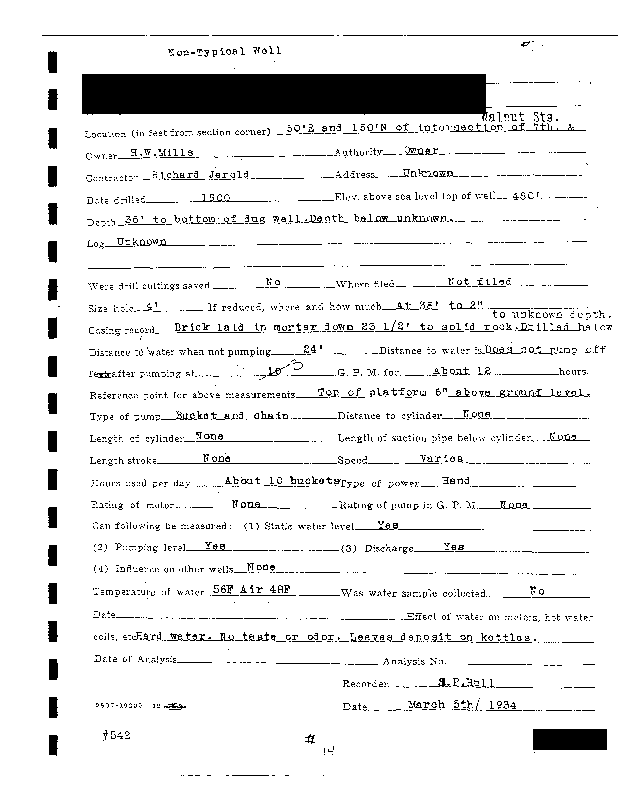 Non-Typical Well
Walnut Sts.
Location (in feet from section corner) 50'E and 150'N of intersection of 7th. &
Owner H.W.Mills Authority Owner
Contractor Richard Jerold Address Unknown
Date drilled 1900 Elev. above sea level top of well 480'.
Depth 36' to bottom of dug well.Depth below unknown.
Log Unknown
Were drill cuttings saved No Where filed Not filed
Size hole 4' If reduced, where and how much At 36' to 2"
to unknown depth.
Casing record Brick laid in mortar down 23 1/2' to solid rock.Drilled below
Distance to water when not pumping 24' Distance to water is Does not pump off
feet after pumping at 10 3 G. P. M. for About 12 hours
Reference point for above measurements Top of platform 6" above ground level.
Type of pump Bucket and chain Distance to cylinder None
Length of cylinder None Length of suction pipe below cylinder None
Length stroke None Speed Varies
Hours used per day About 10 buckets Type of power Hand
Rating of motor None Rating of pump in G. P. M. None
Can following be measured: (1) Static water level Yes
(2) Pumping level Yes (3) Discharge Yes
(4) Influence on other wells None
Temperature of water 56F Air 48F Was water sample collected No
Date Effect of water on meters, hot water
coils, etc. Hard water. No taste or odor. Leaves deposit on kettles.
Date of Analysis Analysis No.
Recorder S.P.Hall
Date March 5th/ 1934
#542
#